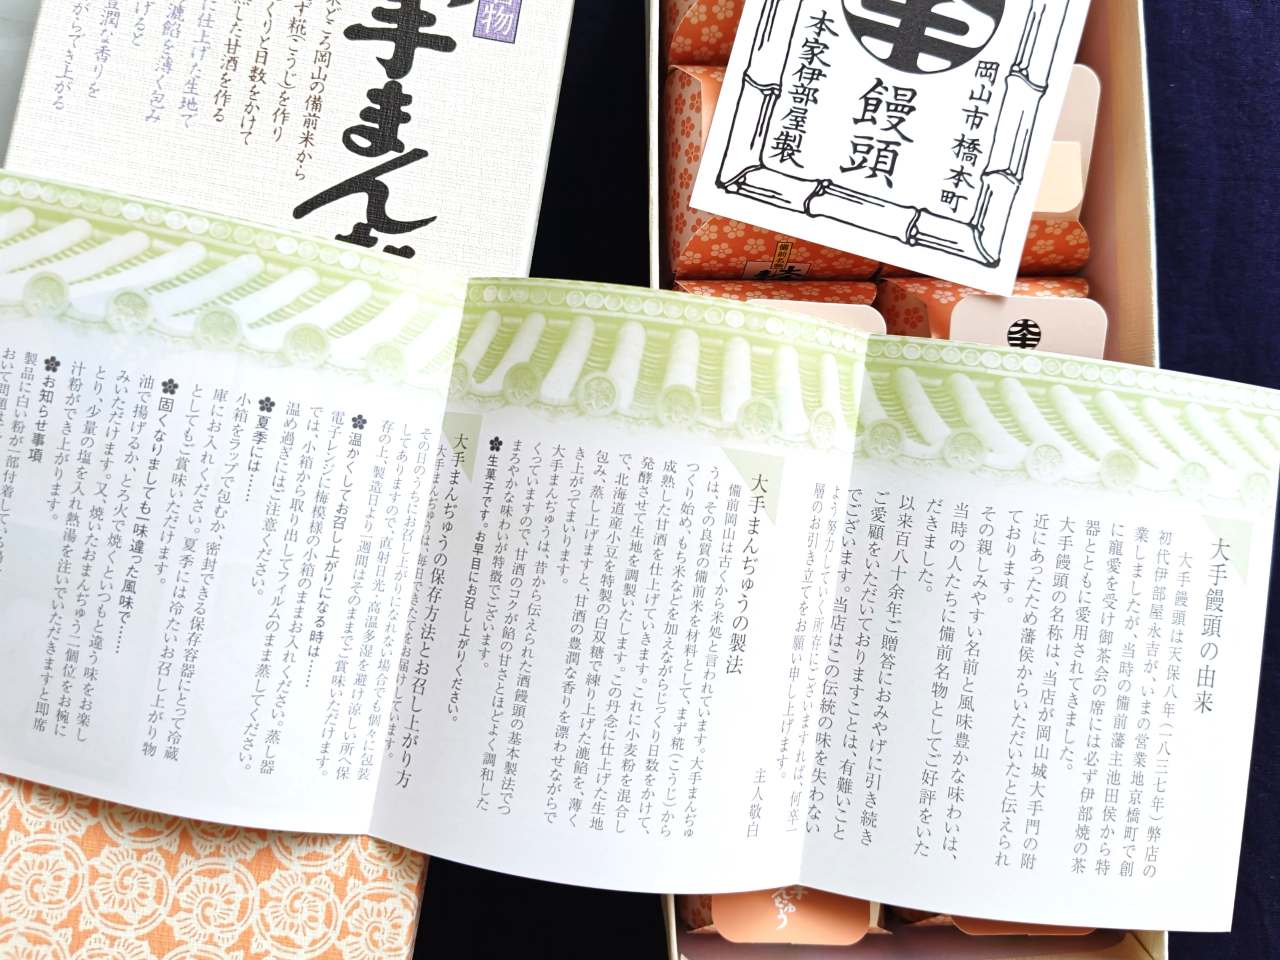 名物
手まんぢ
米どころ岡山の備前米から
まず糀(こうじ)を作り
じっくりと日数をかけて
熟した甘酒を作る
に仕上げた生地で
漉餡を薄く包み
げると
豊潤な香りを
がらでき上がる
饅頭
岡山市橋本町
本家伊部屋製
備前名物
大手饅頭の由来
大手饅頭は天保八年(一八三七年)弊店の
初代伊部屋永吉が、いまの営業地京橋町で創
業しましたが、当時の備前藩主池田侯から特
に寵愛を受け御茶会の席には必ず伊部焼の茶
器とともに愛用されてきました。
大手饅頭の名称は、当店が岡山城大手門の附
近にあったため藩侯からいただいたと伝えられ
ております。
その親しみやすい名前と風味豊かな味わいは、
当時の人たちに備前名物としてご好評をいた
だきました。
以来百八十余年ご贈答におみやげに引き続き
ご愛顧をいただいておりますことは、有難いこと
でございます。当店はこの伝統の味を失わない
よう努力していく所存にございますれば、何卒一
層のお引き立てをお願い申し上げます。
主人敬白
大手まんぢゅうの製法
備前岡山は古くから米処と言われています。大手まんぢゅ
うは、その良質の備前米を材料として、まず糀(こうじ)から
つくり始め、もち米などを加えながらじっくり日数をかけて、
成熟した甘酒を仕上げていきます。これに小麦粉を混合し
発酵させて生地を調製いたします。この丹念に仕上げた生地
で、北海道産小豆を特製の白双糖で練り上げた漉餡を、薄く
包み、蒸し上げますと、甘酒の豊潤な香りを漂わせながらで
き上がってまいります。
大手まんぢゅうは、昔から伝えられた酒饅頭の基本製法でつ
くっていますので、甘酒のコクが餡の甘さとほどよく調和した
まろやかな味わいが特徴でございます。
生菓子です。お早目にお召し上がりください。
大手まんぢゅうの保存方法とお召し上がり方
大手まんぢゅうは、毎日できたてをお届けしています。
その日のうちにお召し上がりになれない場合でも個々に包装
してありますので、直射日光・高温多湿を避け涼しい所へ保
存の上、製造日より一週間はそのままでご賞味いただけます。
温かくしてお召し上がりになる時は……
電子レンジに梅模様の小箱のままお入れください。蒸し器
では、小箱から取り出してフィルムのまま蒸してください。
温め過ぎにはご注意ください。
夏季には……
小箱をラップで包むか、密封できる保存容器にとって冷蔵
庫にお入れください。夏季には冷たいお召し上がり物
としてもご賞味いただけます。
固くなりましても一味違った風味で……
油で揚げるか、とろ火で焼くといつもと違う味をお楽し
みいただけます。又、焼いたおまんぢゅう二個位をお椀に
とり、少量の塩を入れ熱湯を注いでいただきますと即席
汁粉ができ上がります。
お知らせ事項
製品に白い粉が一部付着して
おいて問題